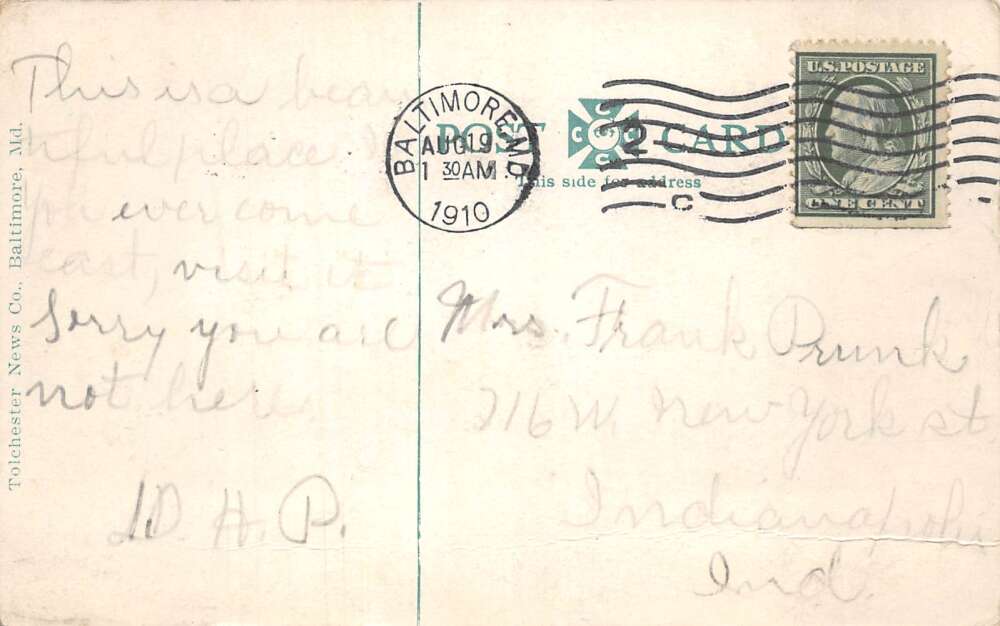 This is a beau
tiful place If
you ever come
east, visit it
Sorry you are
not here
D. H. P.
Tolchester News Co., Baltimore, Md.
BALTIMORE, MD.
AUG 19
1 30 AM
1910
POST CARD
This side for address
2
C
U.S. POSTAGE
ONE CENT
Mrs. Frank Prunk
716 W. New York st
Indianapolis
Ind.